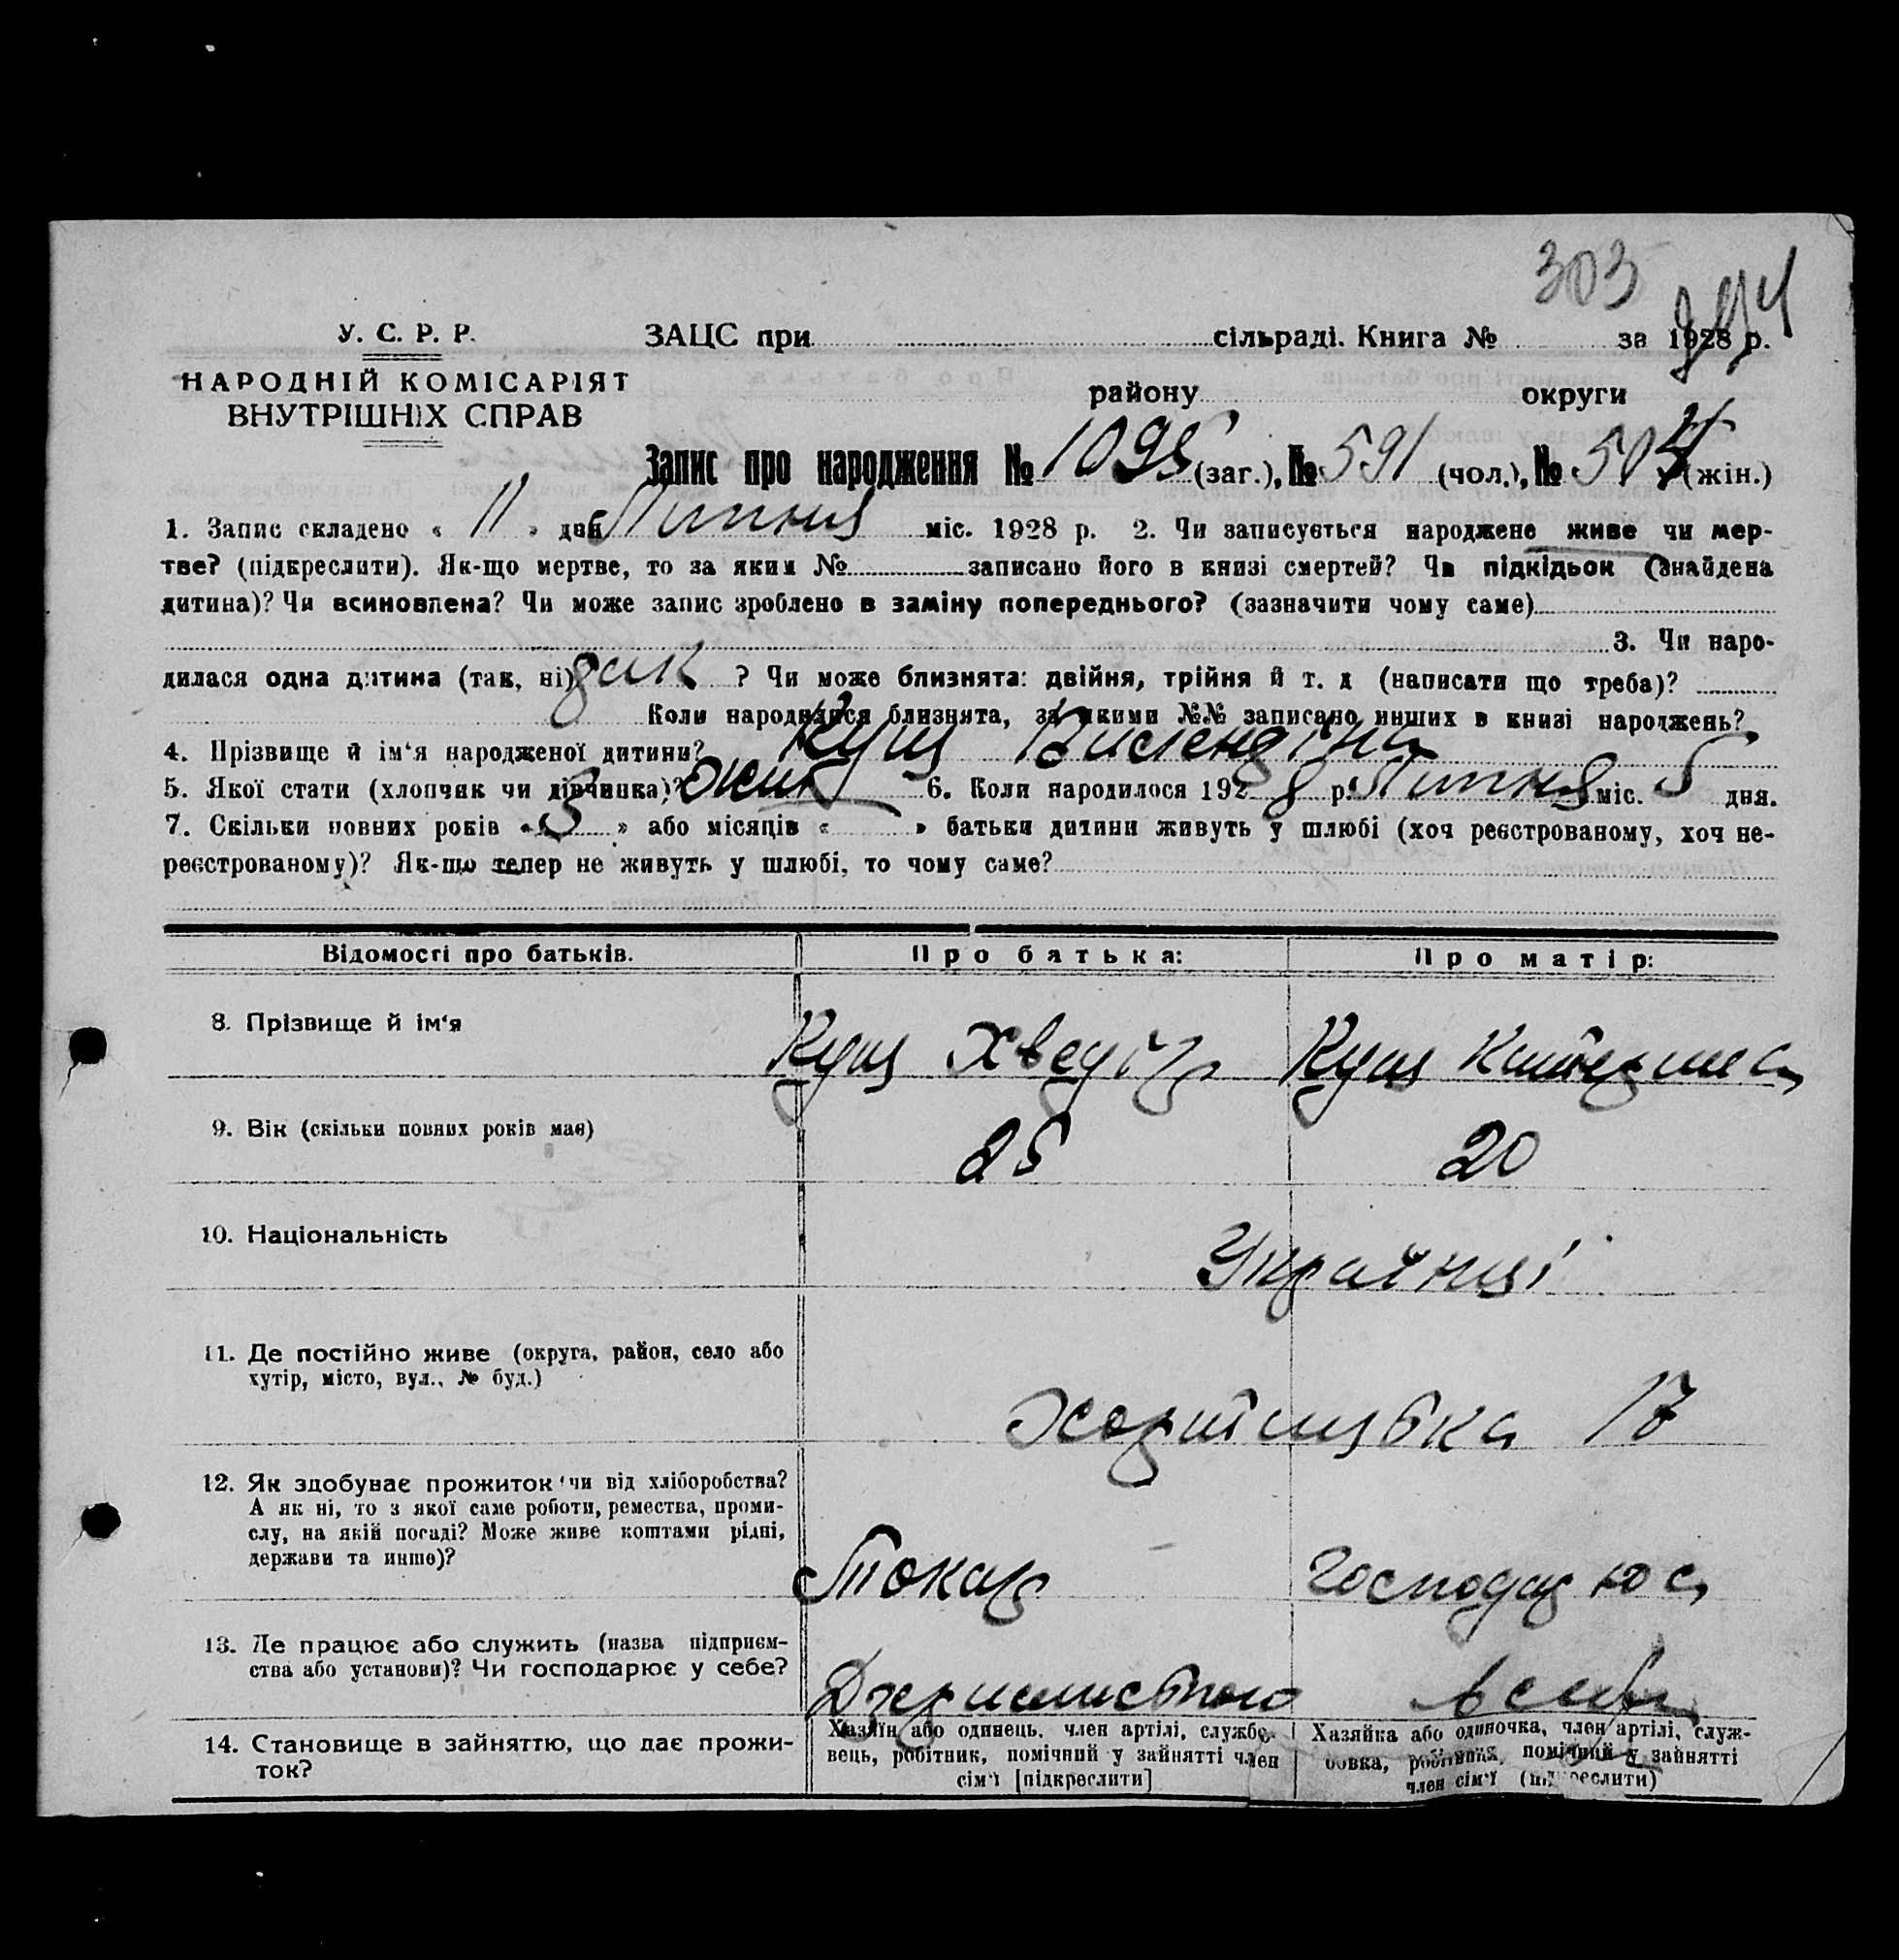 303
У. С. Р. Р.
ЗАЦС при сільраді. Книга № за 1928 р.
НАРОДНІЙ КОМІСАРІЯТ
ВНУТРІШНІХ СПРАВ
району округи
Запис про народження № 1095 (заг.), № 591 (чол.), № 504 (жін.)
1. Запис складено « 11 » дня Липня міс. 1928 р. 2. Чи записується народжене живе чи мер-
тве? (підкреслити). Як-що мертве, то за яким № записано його в книзі смертей? Чи підкідьок (знайдена
дитина)? Чи всиновлена? Чи може запис зроблено в заміну попереднього? (зазначити чому саме)
3. Чи наро-
дилася одна дитина (так, ні) ? Чи може близнята: двійня, трійня й т. д (написати що треба)?
Коли народилися близнята, за якими №№ записано инших в книзі народжень?
4. Прізвище й ім'я народженої дитини? Кущ
5. Якої стати (хлопчик чи дівчинка)? жін 6. Коли народилося 1928 р. Липня міс. 5 дня.
7. Скільки повних років « 3 » або місяців « » батьки дитини живуть у шлюбі (хоч реєстрованому, хоч не-
реєстрованому)? Як-що тепер не живуть у шлюбі, то чому саме?
Відомості про батьків. Про батька: Про матір:
8. Прізвище й ім'я Кущ Хведір Кущ Катерина
9. Вік (скільки повних років має) 25 20
10. Національність Українці
11. Де постійно живе (округа, район, село або
хутір, місто, вул., № буд.)
17
12. Як здобуває прожиток чи від хліборобства?
А як ні, то з якої саме роботи, ремества, проми-
слу, на якій посаді? Може живе коштами рідні,
держави та инше)?
Токар Господарює
13. Де працює або служить (назва підприєм-
ства або установи)? Чи господарює у себе?
14. Становище в зайняттю, що дає прожи-
ток?
Хазяїн або одинець, член артілі, службо-
вець, робітник, помічний у зайнятті член
сім'ї [підкреслити]
Хазяйка або одиночка, член артілі, служ-
бовка, робітниця, помічний у зайнятті
член сім'ї (підкреслити)